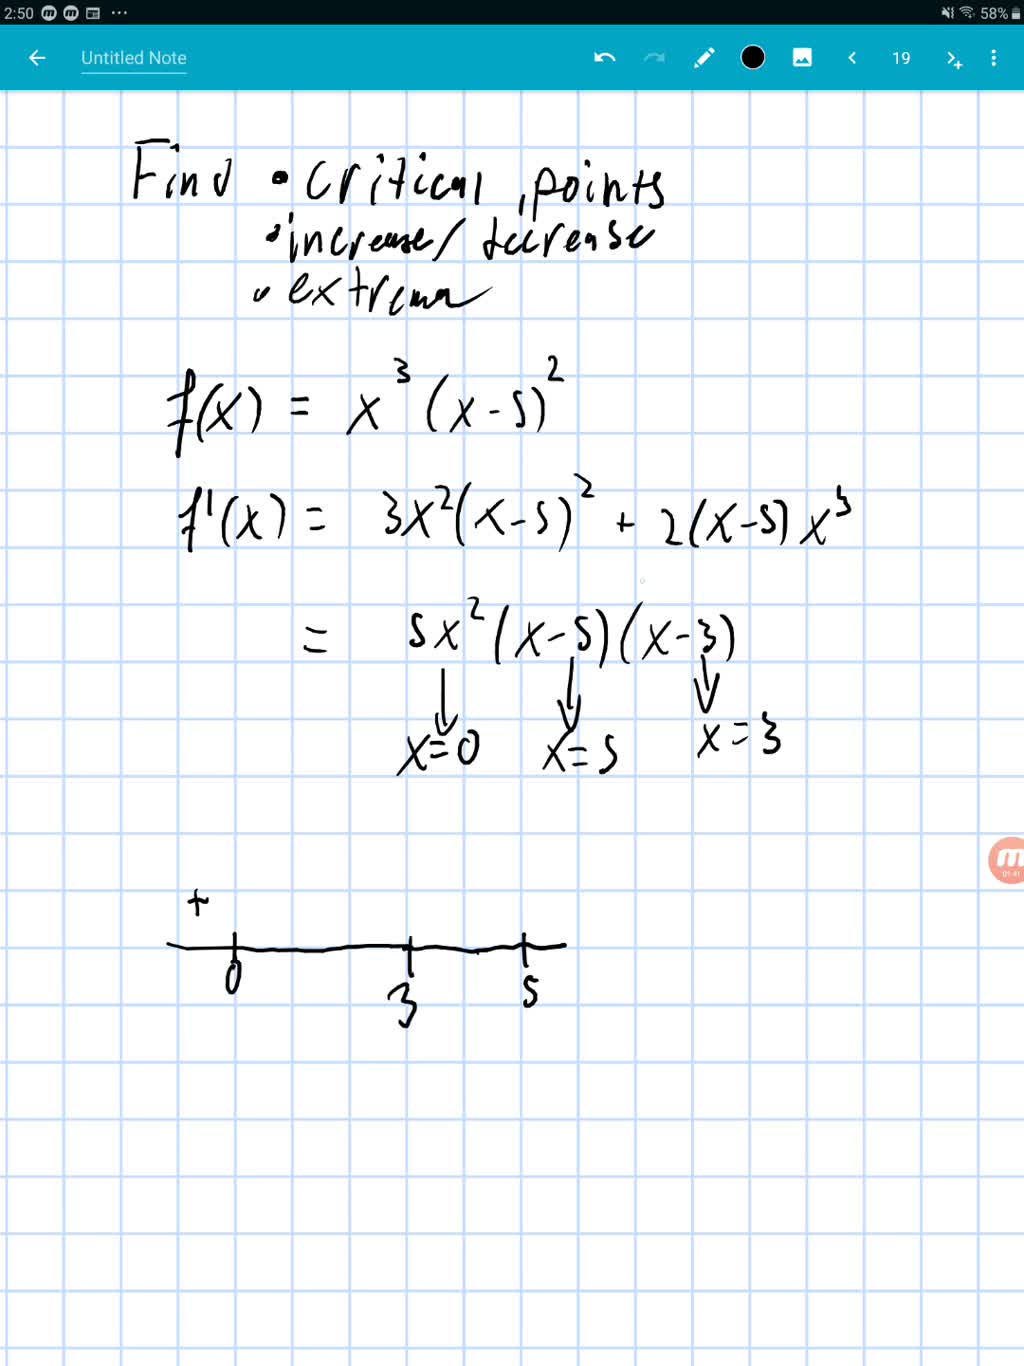 2:50 58%
Untitled Note 19
Find • critical points
• increase/decrease
• extrema
f(x) = x³(x-5)²
f'(x) = 3x²(x-5)² + 2(x-5)x³
= 5x²(x-5)(x-3)
x=0 x=5 x=3
m
01:41
+
0 3 5